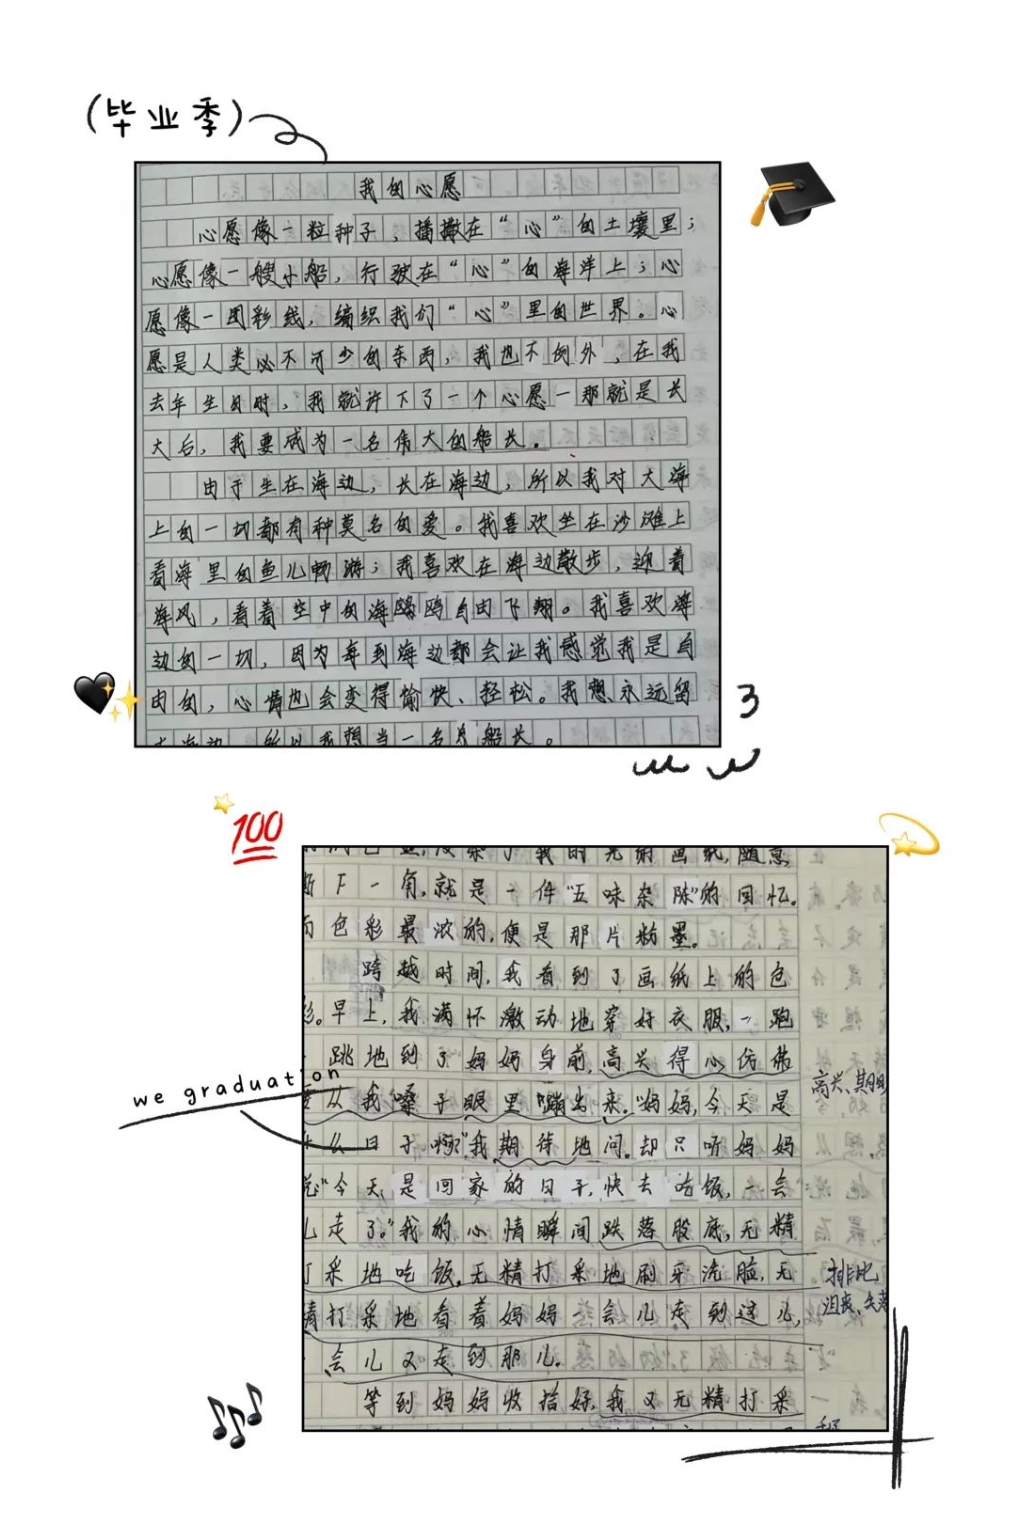 (毕业季)
我的心愿
心愿像一粒种子，播撒在“心”的土壤里；
心愿像一艘小船，行驶在“心”的海洋上；心
愿像一团彩线，编织我们“心”里的世界。心
愿是人类必不可少的东西，我也不例外，在我
去年生日时，我就许下了一个心愿一那就是长
大后，我要成为一名伟大的船长。
由于生在海边，长在海边，所以我对大海
上的一切都有种莫名的爱。我喜欢坐在沙滩上
看海里的鱼儿畅游；我喜欢在海边散步，迎着
海风，看着空中的海鸥鸥自由飞翔。我喜欢海
边的一切，因为每到海边都会让我感觉我是自
由的，心情也会变得愉快、轻松。我想永远留
在海边，所以我想当一名船长。
3
100
了我的光射画纸，随意
下一角，就是一件“五味杂陈”的回忆。
而色彩最浓的，便是那片粉墨。
跨越时间，我看到了画纸上的色
彩。早上，我满怀激动地穿好衣服，一跑
跳地到了妈妈身前，高兴得心仿佛
要从我嗓子眼里蹦出来。“妈妈，今天是
什么日子啊？”我期待地问。却只听妈妈
说“今天是回家的日子，快去吃饭，一会
儿走了。”我的心情瞬间跌落股底，无精
打采地吃饭，无精打采地刷牙洗脸，无
精打采地看着妈妈一会儿走到这儿，
会儿又走到那儿。
等到妈妈收拾好，我又无精打采
高兴、期盼
排比
沮丧、失落
we graduation